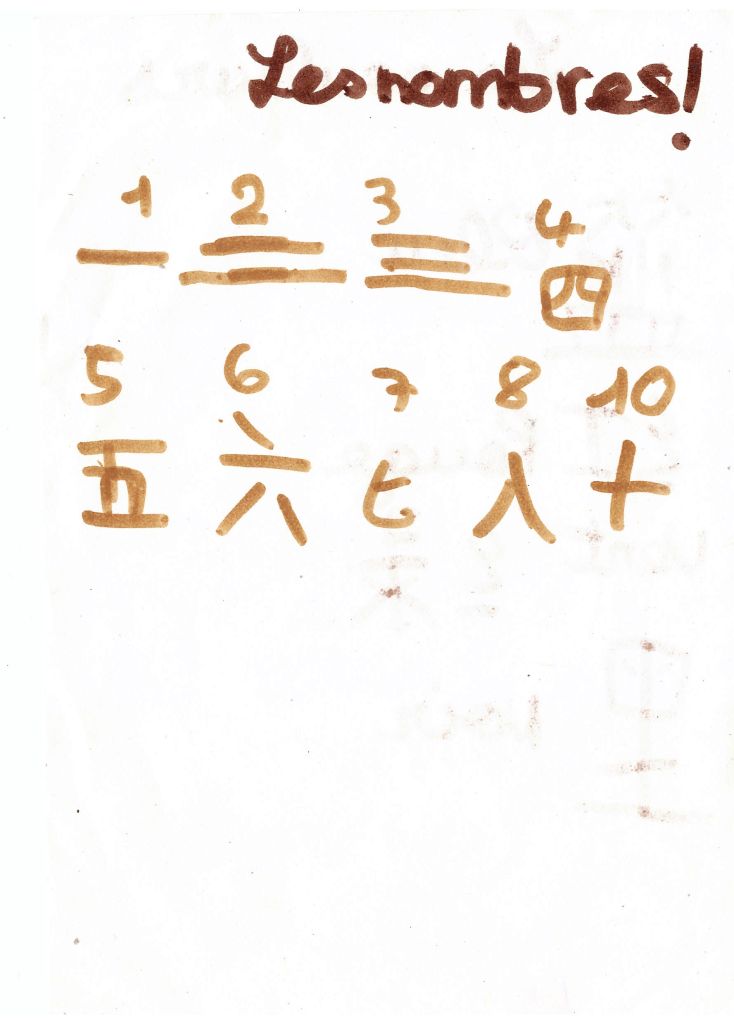 Les nombres!
1 2 3 4
一 二 三 四
5 6 7 8 10
五 六 七 八 十